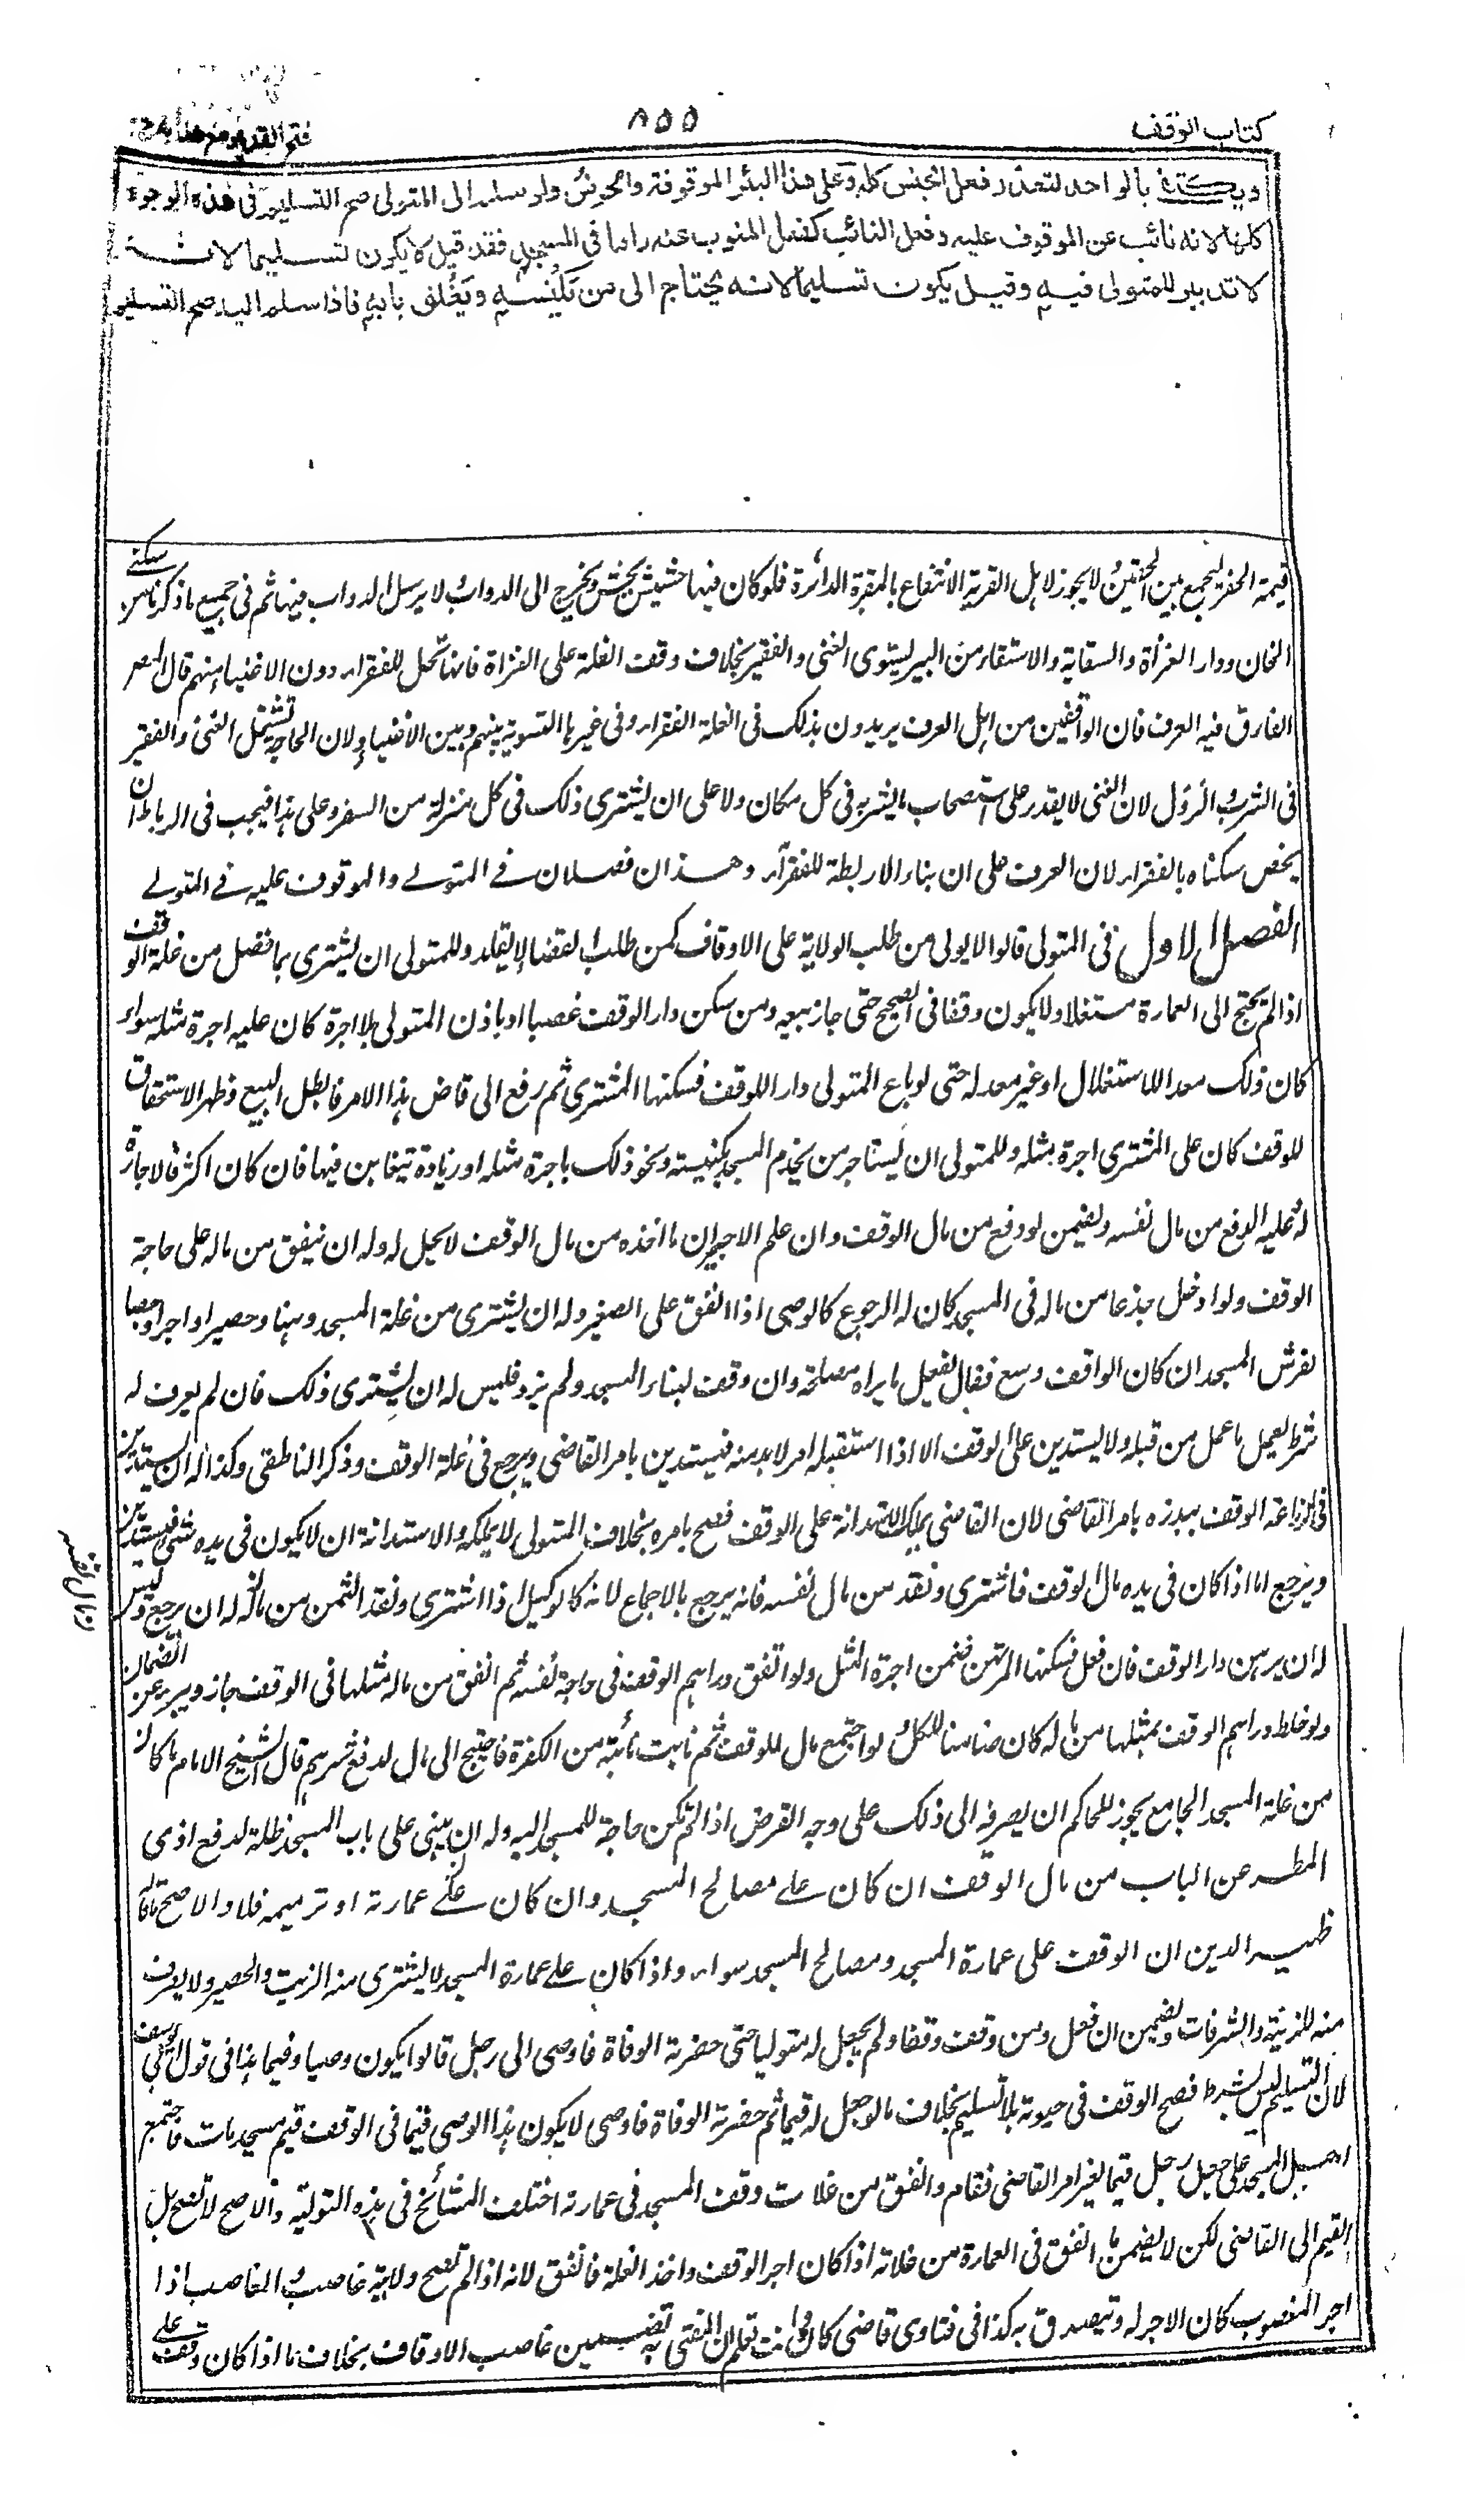 كتاب الوقف
٨٥٥
فتح القدير مع هدايه ج ٢
ويكتفى بالواحد لتعذر فعل الجنس كله وعلى هذا البئر الموقوفة والحوض ولو سلم الى المتولى صح التسليم فى هذه الوجوه
كلها لانه نائب عن الموقوف عليه وفعل النائب كفعل المنوب عنه واما فى المسجد فقد قيل لا يكون تسليما لانه
لا تدبير للمتولى فيه وقيل يكون تسليما لانه يحتاج الى من يكنسه ويغلق بابه فاذا سلم اليه صح التسليم
قيمة الحفر ليجمع بين الحقين لا يجوز لاهل القرية الانتفاع بالمقبرة الداثرة فلو كان فيها حشيش يحش ويخرج الى الدواب لا يرسل الدواب فيها ثم فى جميع ما ذكرنا من سكنے
الخان ودار الغزاة والسقاية والاستقاء من البير يستوى الغنى والفقير بخلاف وقف الغلة على الغزاة فانها تحل للفقراء دون الاغنياء منهم قال المصر
الفارق فيه العرف فان الواقفين من اهل العرف يريدون بذلك فى الغلة الفقراء وفى غيرها التسوية بينهم وبين الاغنياء ولان الحاجة تشمل الغنى والفقير
فى الشرب والنزول لان الغنى لا يقدر على استصحاب ما يشربه فى كل مكان ولا على ان يشترى ذلك فى كل منزلة من السفر وعلى هذا فيجب فى الرباط ان
يخص سكناه بالفقراء لان العرف على ان بناء الاربطة للفقراء وهذان فصلان فے المتولے والموقوف عليه فے المتولے
الفصل الاول فى المتولى قالوا لا يولى من طلب الولاية على الاوقاف كمن طلب القضاء لا يقلد وللمتولى ان يشترى بما فضل من غلة الوقف
اذا لم يحتج الى العمارة مستغلا ولا يكون وقفا فى الصحيح حتى جاز بيعه ومن سكن دار الوقف غصبا او باذن المتولى بلا اجرة كان عليه اجرة مثله سواء
كان ذلك معدا للاستغلال او غير معد له حتى لو باع المتولى دارا للوقف فسكنها المشترى ثم رفع الى قاض هذا الامر فابطل البيع وظهر الاستحقاق
للوقف كان على المشترى اجرة مثله وللمتولى ان يستاجر من يخدم المسجد بكنيسه ونحو ذلك باجرة مثله او زيادة يتغابن فيها فان كان اكثر فالاجارة
له وعليه الدفع من مال نفسه ويضمن لو دفع من مال الوقف وان علم الاجير ان ما اخذه من مال الوقف لا يحل له وله ان ينفق من ماله على حاجة
الوقف ولو ادخل جذعا من ماله فى المسجد كان له الرجوع كالوصى اذا انفق على الصغير وله ان يشترى من غلة المسجد دهنا وحصيرا واجرا وجصا
لفرش المسجد ان كان الواقف وسع فقال يفعل ما يراه مصلحة وان وقف لبناء المسجد ولم يزد فليس له ان يشترى ذلك فان لم يعرف له
شرط يعمل ما عمل من قبله ولا يستدين على الوقف الا اذا استقبله امر لا بد منه فيستدين بامر القاضى ويرجع فى غلة الوقف وذكر الناطقى وكذا له ان يستدين
فى لزراعة الوقف ببذره بامر القاضى لان القاضى يملك الاستدانة على الوقف فصح بامره بخلاف المتولى لا يملكه والاستدانة ان لا يكون فى يده شئ فيستدين
ويرجع اما اذا كان فى يده مال الوقف فاشترى ونقد من مال نفسه فانه يرجع بالاجماع لانه كالوكيل اذا اشترى ونقد الثمن من ماله له ان يرجع وليس
له ان يرهن دار الوقف فان فعل فسكنها المرتهن ضمن اجرة المثل ولو انفق دراهم الوقف فى حاجة نفسه ثم انفق من ماله مثلها فى الوقف جاز ويبرء عن الضمان
ولو خلط دراهم الوقف بمثلها من ماله كان ضامنا للكل لو اجتمع مال للوقف ثم نابت نائبة من الكفرة فاحتيج الى مال لدفع شرهم قال الشيخ الامام ما كان
من غلة المسجد الجامع يجوز للحاكم ان يصرفه الى ذلك على وجه القرض اذا لم تكن حاجة للمسجد اليه وله ان يبنى على باب المسجد ظلة لدفع اذى
المطر عن الباب من مال الوقف ان كان علے مصالح المسجد وان كان علے عمارته او ترميمه فلا والاصح ما قاله
ظهير الدين ان الوقف على عمارة المسجد ومصالح المسجد سواء واذا كان علے عمارة المسجد لا يشترى منه الزيت والحصير ولا يصرف
منه للزينة والشرفات ويضمن ان فعل ومن وقف وقفا ولم يجعل له متوليا حتى حضرته الوفاة فاوصى الى رجل قالوا يكون وصيا وقيما هذا فى قول ابى يوسف
لان التسليم ليس بشرط فصح الوقف فى حيوته بلا تسليم بخلاف ما لو جعل له قيما ثم حضرته الوفاة فاوصى لا يكون هذا الوصى قيما فى الوقف قيم مسجد مات فاجتمع
اهل المسجد على جعل رجل قيما بغير امر القاضى فقام وانفق من غلات وقف المسجد فى عمارته اختلف المشائخ فى هذه التولية والاصح لا تصح بل
القيم الى القاضى لكن لا يضمن ما انفق فى العمارة من غلاته اذا كان اجر الوقف واخذ الغلة فانفق لانه اذا لم تصح ولايته غاصب والغاصب اذا
اجر المغصوب كان الاجر له ويتصدق به كذا فى فتاوى قاضى خان وانت تعلم ان المفتى به تضمين غاصب الاوقاف بخلاف ما اذا كان وقف على